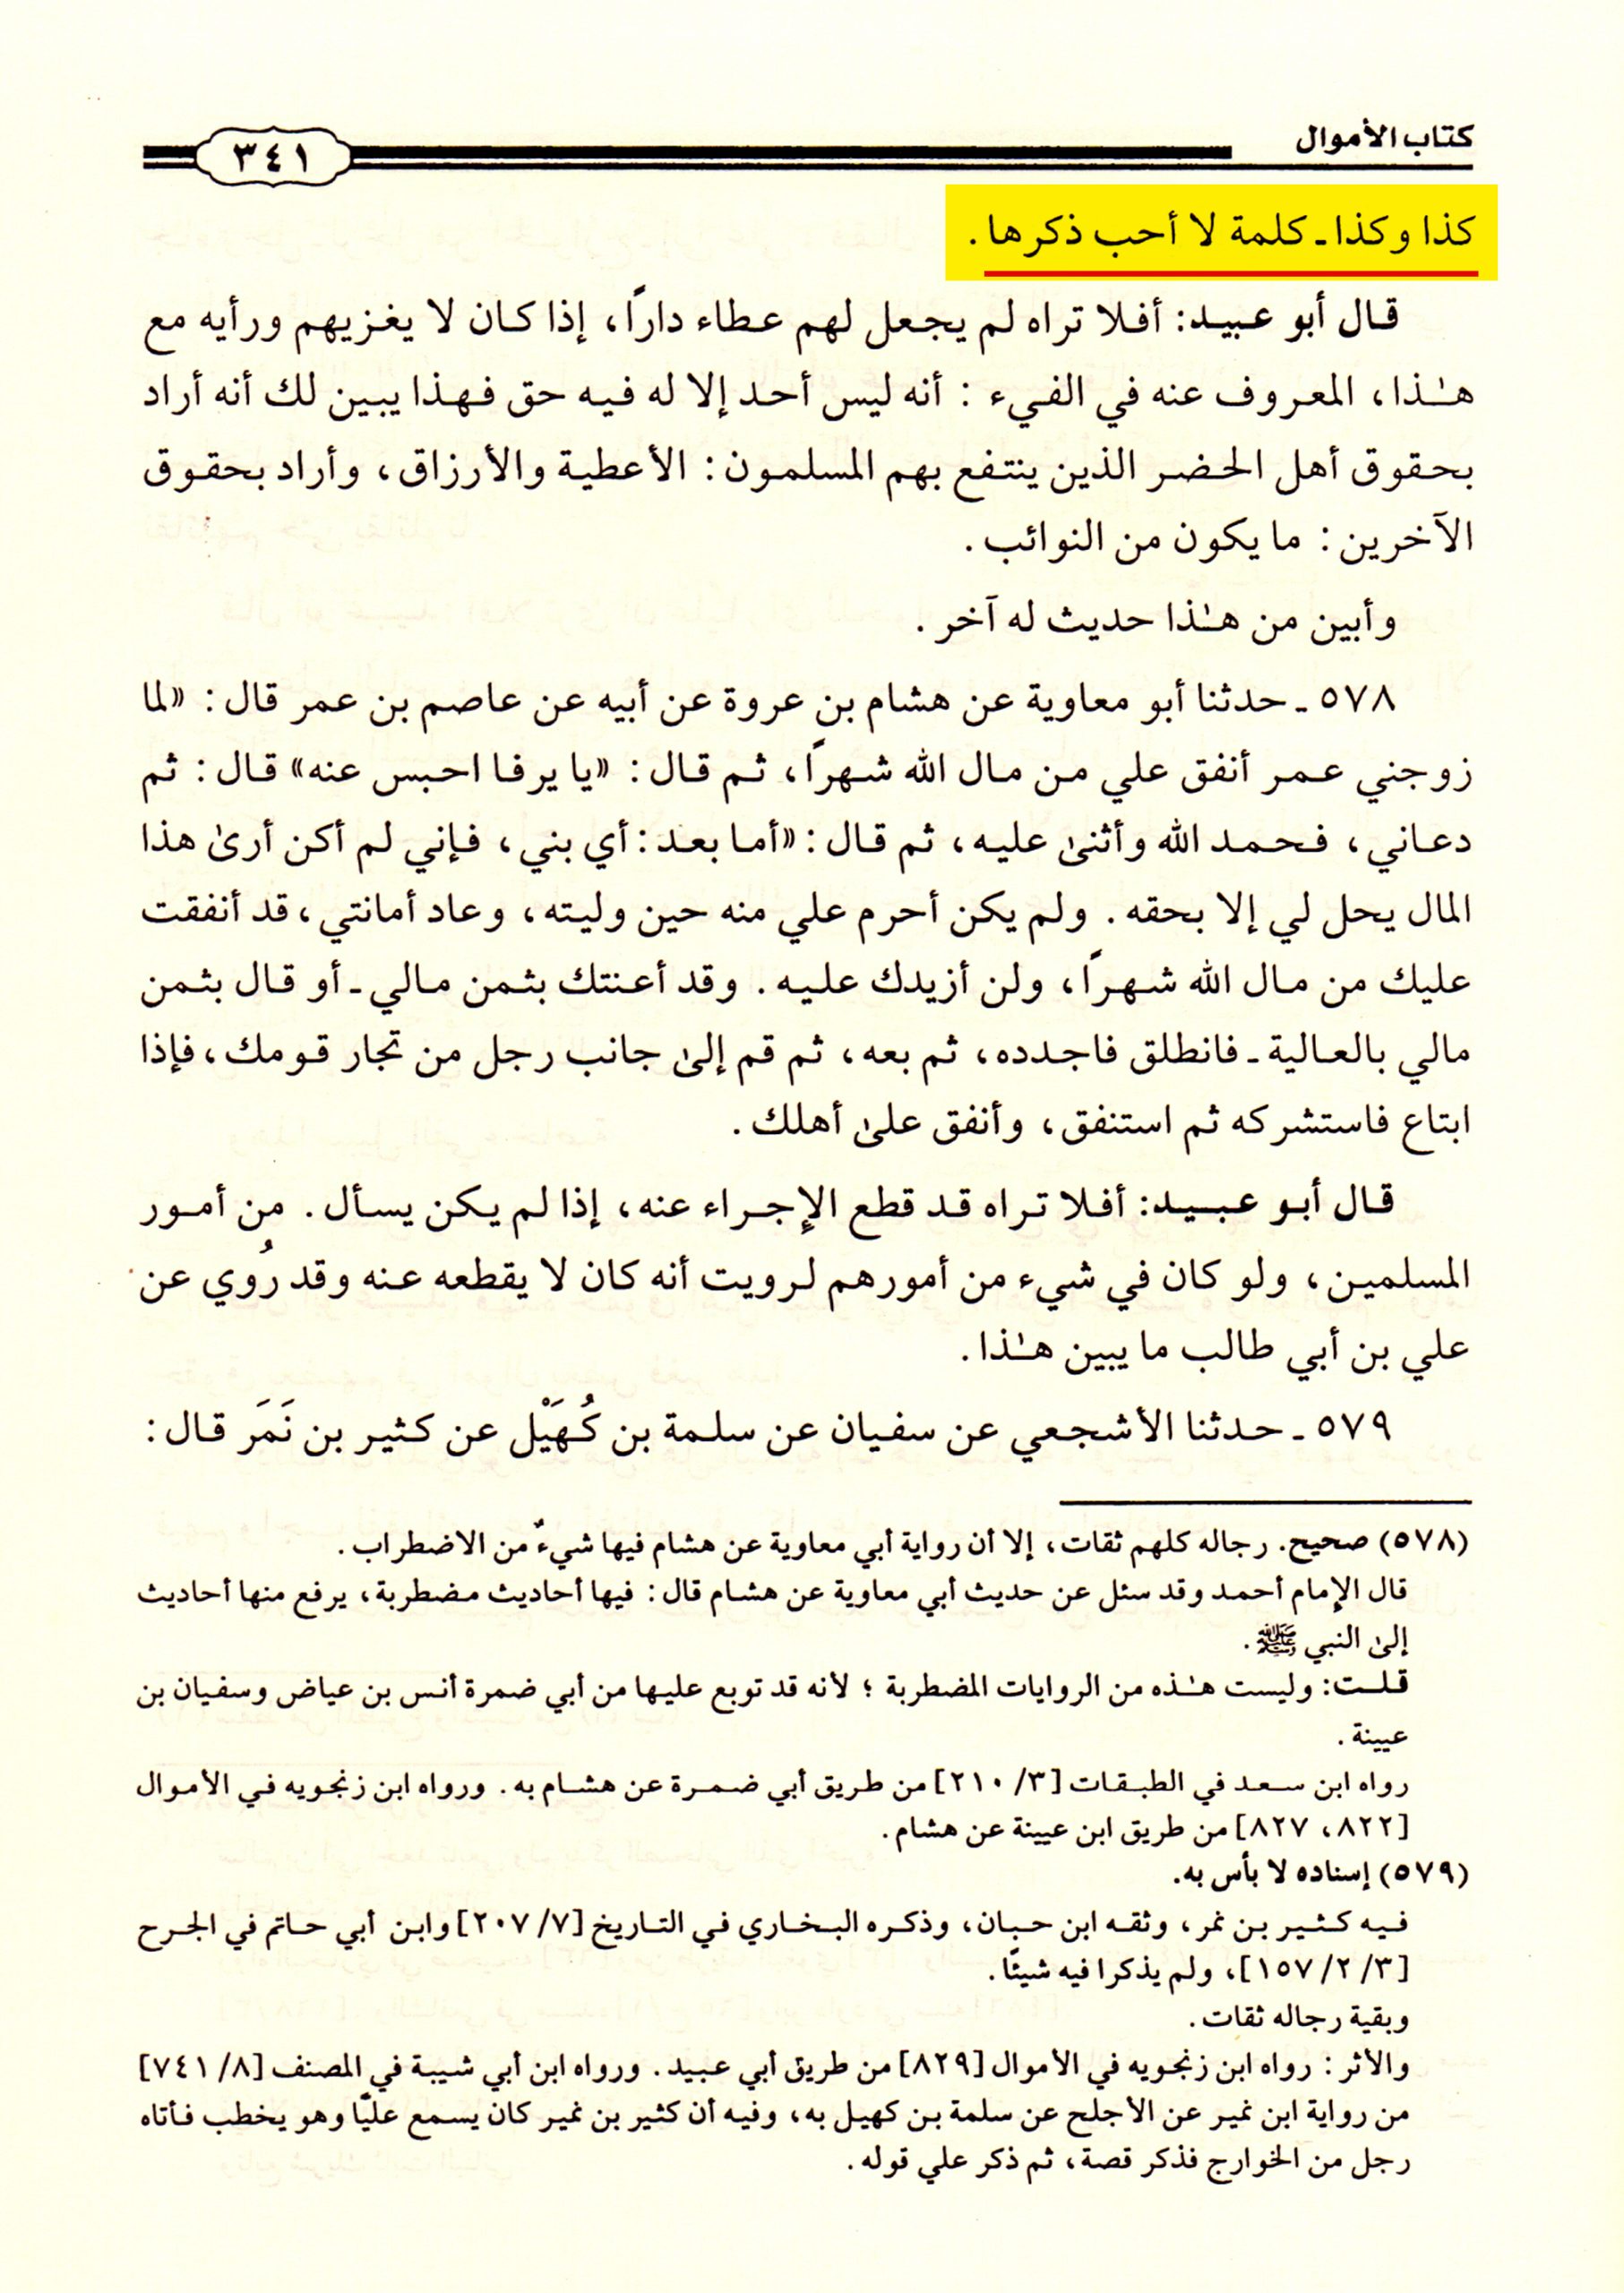 كتاب الأموال
٣٤١
كذا وكذا ـ كلمة لا أحب ذكرها .
قال أبو عبيد: أفلا تراه لم يجعل لهم عطاء دارًا، إذا كان لا يغزيهم ورأيه مع
هـٰذا، المعروف عنه في الفيء : أنه ليس أحد إلا له فيه حق فهذا يبين لك أنه أراد
بحقوق أهل الحضر الذين ينتفع بهم المسلمون : الأعطية والأرزاق، وأراد بحقوق
الآخرين : ما يكون من النوائب .
وأبين من هـٰذا حديث له آخر .
٥٧٨ ـ حدثنا أبو معاوية عن هشام بن عروة عن أبيه عن عاصم بن عمر قال : «لما
زوجني عمر أنفق علي من مال الله شهرًا، ثم قال : «يا يرفا احبس عنه» قال : ثم
دعاني، فحمد الله وأثنىٰ عليه، ثم قال : «أما بعد : أي بني، فإني لم أكن أرىٰ هذا
المال يحل لي إلا بحقه . ولم يكن أحرم علي منه حين وليته، وعاد أمانتي، قد أنفقت
عليك من مال الله شهرًا، ولن أزيدك عليه . وقد أعنتك بثمن مالي ـ أو قال بثمن
مالي بالعالية ـ فانطلق فاجدده، ثم بعه، ثم قم إلىٰ جانب رجل من تجار قومك، فإذا
ابتاع فاستشركه ثم استنفق، وأنفق علىٰ أهلك .
قال أبو عبيد: أفلا تراه قد قطع الإجراء عنه، إذا لم يكن يسأل . من أمور
المسلمين، ولو كان في شيء من أمورهم لرويت أنه كان لا يقطعه عنه وقد رُوي عن
علي بن أبي طالب ما يبين هـٰذا .
٥٧٩ ـ حدثنا الأشجعي عن سفيان عن سلمة بن كُهَيْل عن كثير بن نَمَر قال :
(٥٧٨) صحيح. رجاله كلهم ثقات، إلا أن رواية أبي معاوية عن هشام فيها شيءٌ من الاضطراب .
قال الإمام أحمد وقد سئل عن حديث أبي معاوية عن هشام قال : فيها أحاديث مضطربة، يرفع منها أحاديث
إلىٰ النبي ﷺ .
قلت: وليست هـٰذه من الروايات المضطربة ؛ لأنه قد توبع عليها من أبي ضمرة أنس بن عياض وسفيان بن
عيينة .
رواه ابن سعد في الطبقات [٣/ ٢١٠] من طريق أبي ضمرة عن هشام به . ورواه ابن زنجويه في الأموال
[٨٢٢، ٨٢٧] من طريق ابن عيينة عن هشام .
(٥٧٩) إسناده لا بأس به.
فيه كثير بن نمر، وثقه ابن حبان، وذكره البخاري في التاريخ [٧/ ٢٠٧] وابن أبي حاتم في الجرح
[٣/ ٢/ ١٥٧]، ولم يذكرا فيه شيئًا .
وبقية رجاله ثقات .
والأثر : رواه ابن زنجويه في الأموال [٨٢٩] من طريق أبي عبيد . ورواه ابن أبي شيبة في المصنف [٨/ ٧٤١]
من رواية ابن نمير عن الأجلح عن سلمة بن كهيل به، وفيه أن كثير بن نمير كان يسمع عليًا وهو يخطب فأتاه
رجل من الخوارج فذكر قصة، ثم ذكر علي قوله .